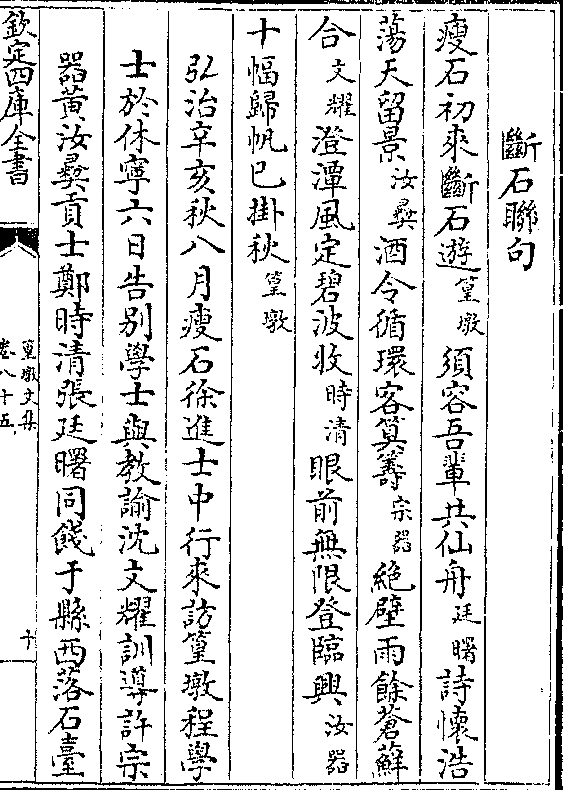 斷石聯句
瘦石初來斷石遊篁墩須容吾輩共仙舟廷曙詩懷浩
蕩天留景汝彝酒令循環客算籌宗器絶壁雨餘蒼蘚
合文耀澄潭風定碧波收時清眼前無限登臨興汝器
十幅歸帆已掛秋篁墩
弘治辛亥秋八月瘦石徐進士中行來訪篁墩程學
士於休寧六日告别學士與教諭沈文耀訓導許宗
器黃汝彝貢士鄭時清張廷曙同餞于縣西落石臺
欽定四庫全書
篁墩文集
卷八十五
十